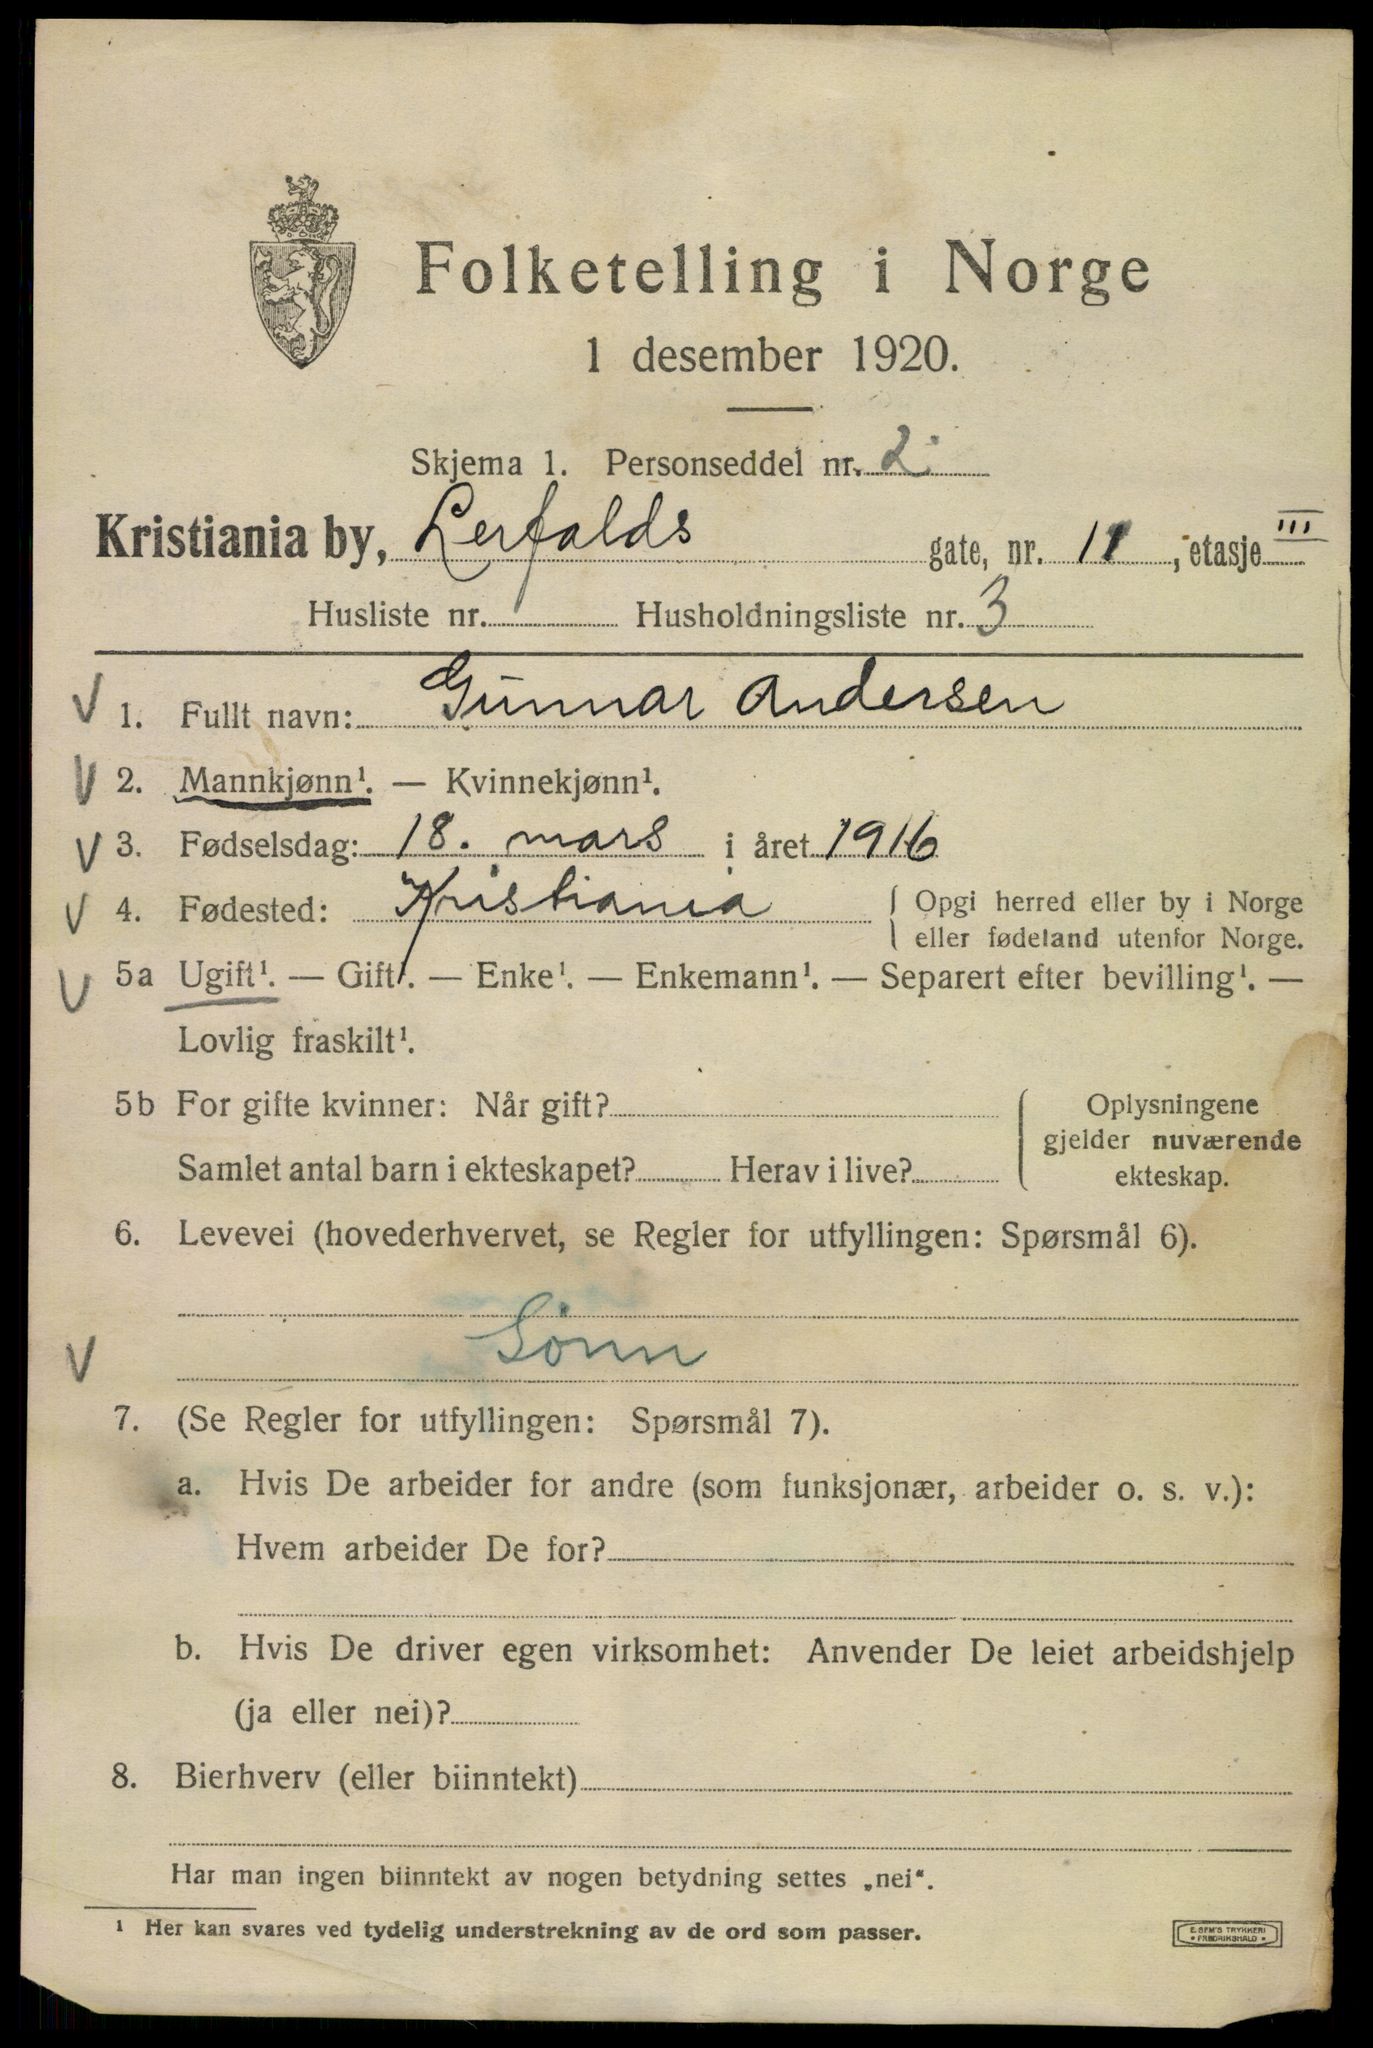 Folketelling i Norge
1 desember 1920.
Skjema 1. Personseddel nr. 2
Kristiania by, Lerfalds gate, nr. 11, etasje III
Husliste nr. Husholdningsliste nr. 3
V 1. Fullt navn: Gunnar Andersen
V 2. Mannkjønn¹. — Kvinnekjønn¹.
V 3. Fødselsdag: 18. mars i året 1916
V 4. Fødested: Kristiania Opgi herred eller by i Norge
eller fødeland utenfor Norge.
V 5a Ugift¹. — Gift¹. — Enke¹. — Enkemann¹. — Separert efter bevilling¹. —
Lovlig fraskilt¹.
5b For gifte kvinner: Når gift? Oplysningene
gjelder nuværende
Samlet antal barn i ekteskapet? Herav i live? ekteskap.
6. Levevei (hovederhvervet, se Regler for utfyllingen: Spørsmål 6).
V Sønn
7. (Se Regler for utfyllingen: Spørsmål 7).
a. Hvis De arbeider for andre (som funksjonær, arbeider o. s. v.):
Hvem arbeider De for?
b. Hvis De driver egen virksomhet: Anvender De leiet arbeidshjelp
(ja eller nei)?
8. Bierhverv (eller biinntekt)
Har man ingen biinntekt av nogen betydning settes „nei“.
¹ Her kan svares ved tydelig understrekning av de ord som passer.
E. SEM'S TRYKKERI
• FREDRIKSHALD •